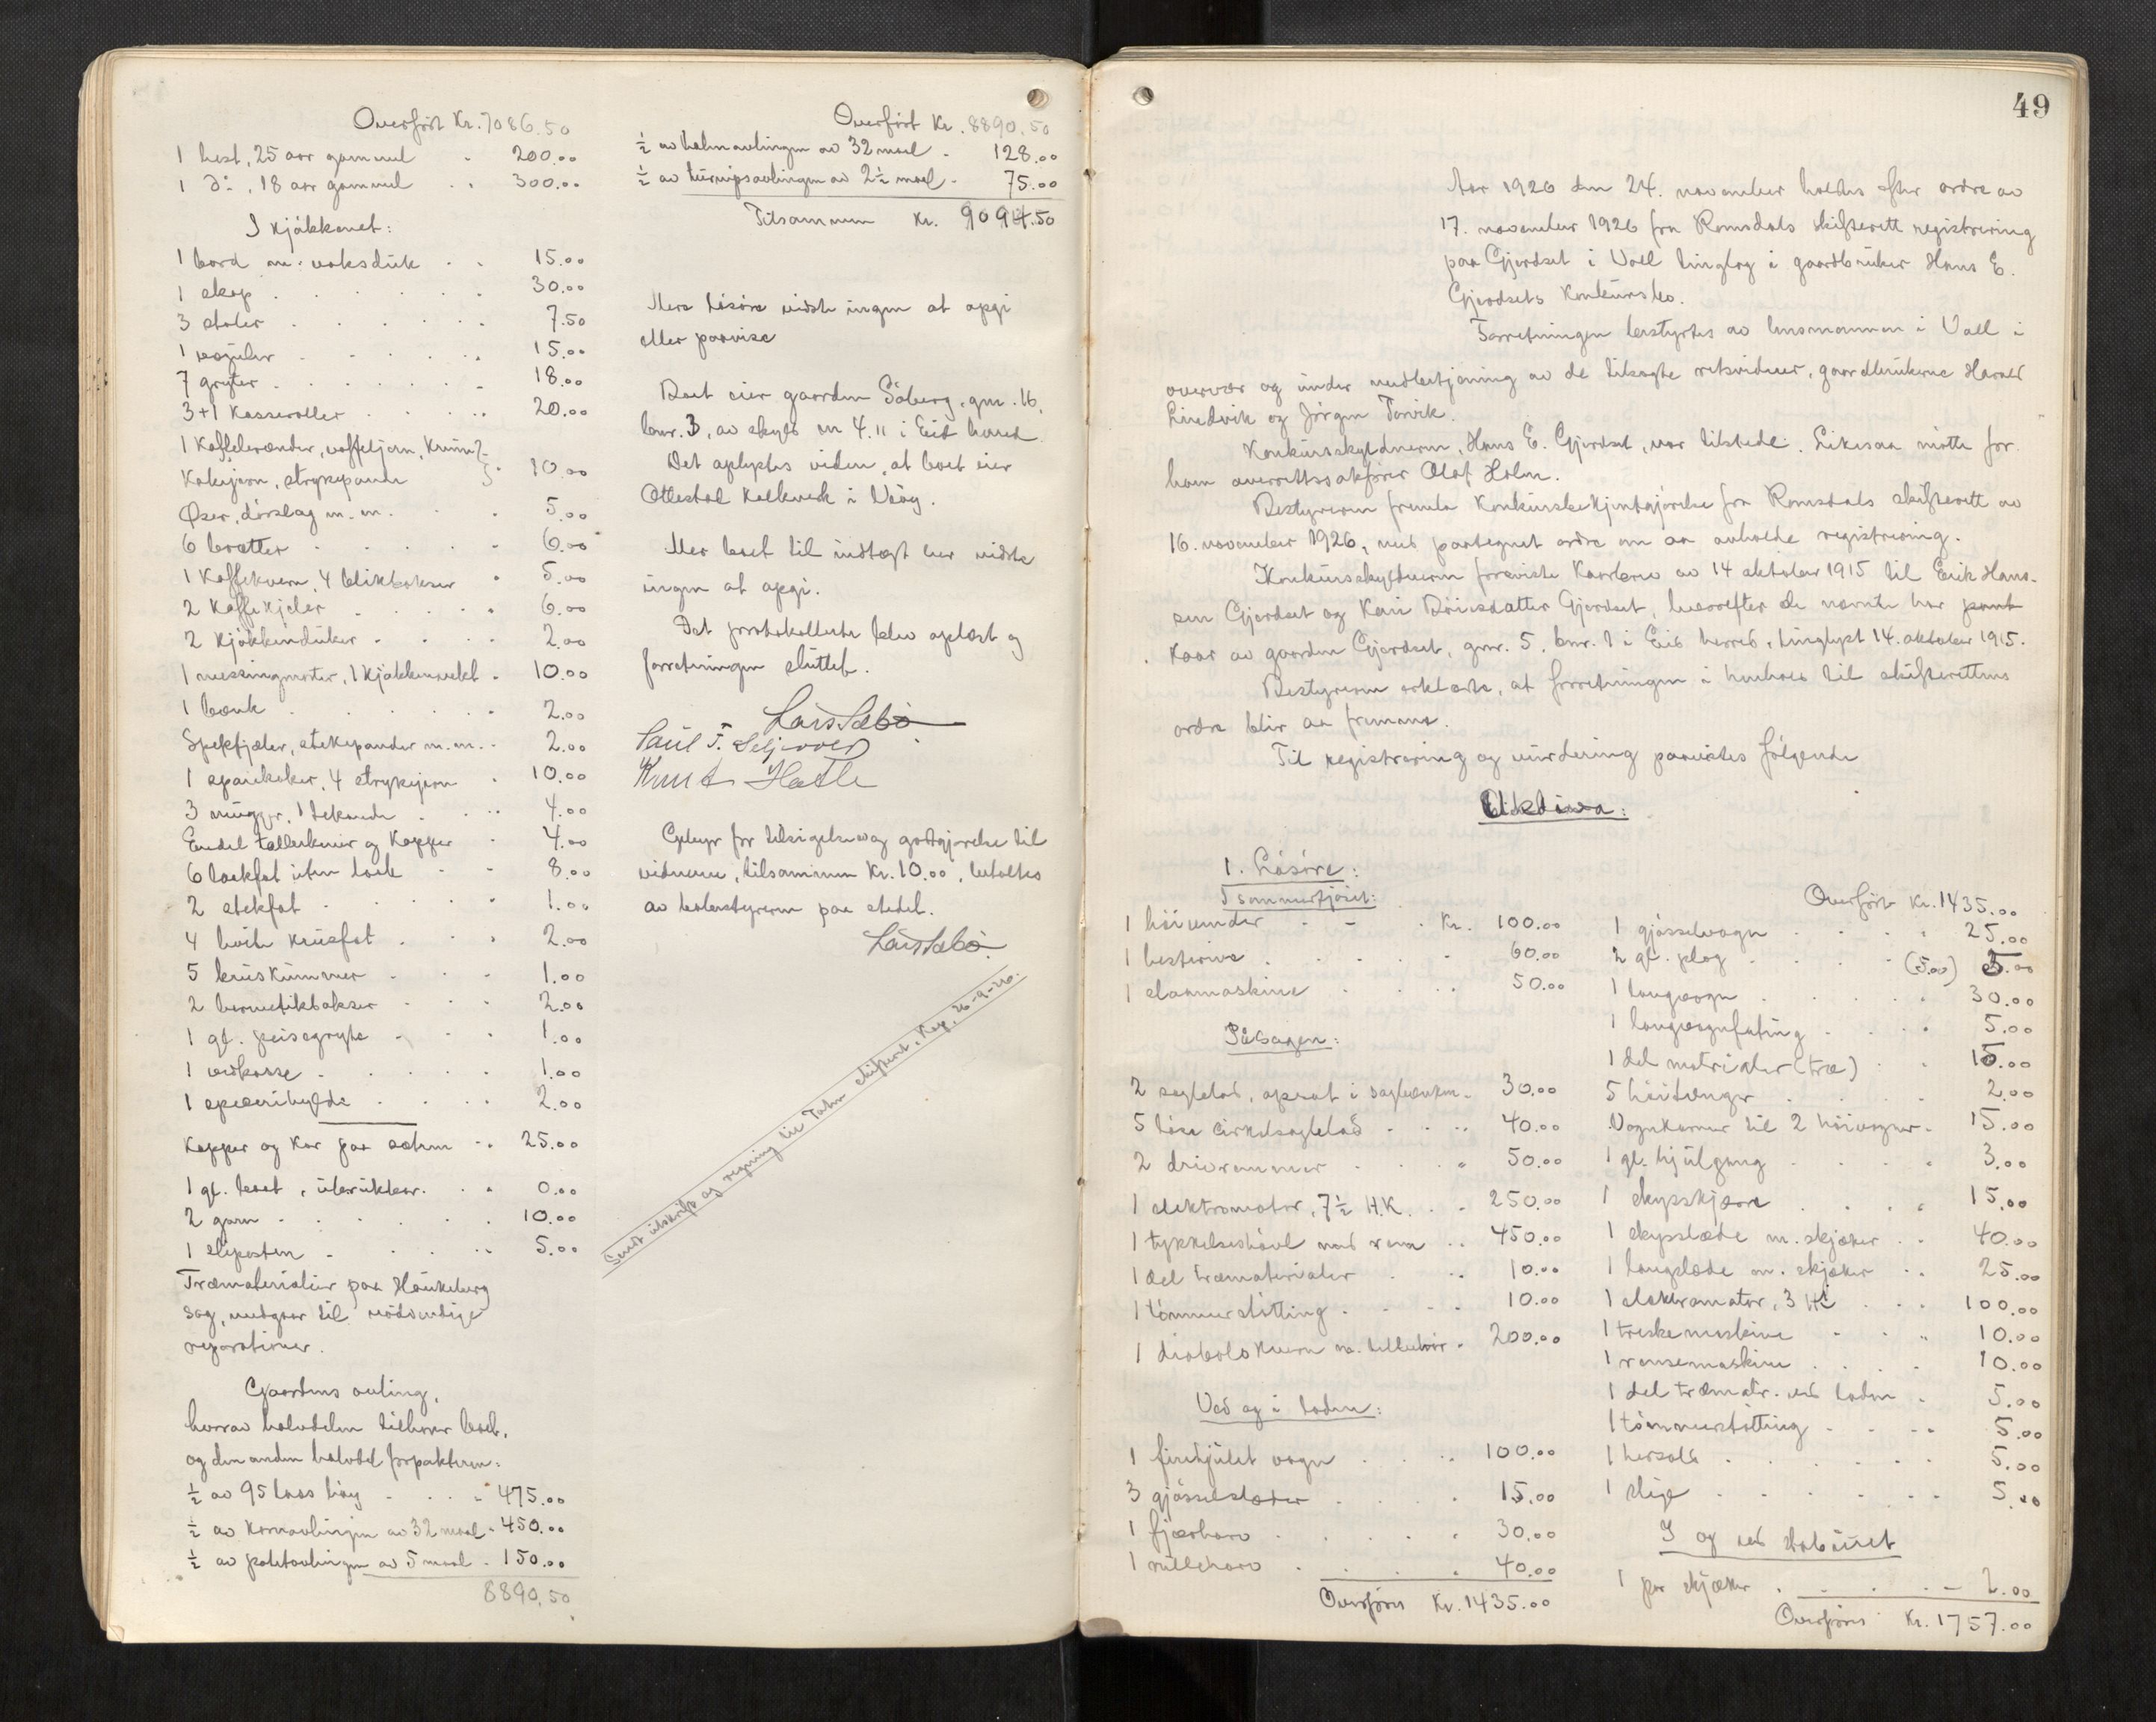 Overført Kr. 7086.50
1 hest, 25 aar gammel . 200.00
1 do, 18 aar gammel . . 300.00
I kjøkkenet:
1 bord m. voksduk . . 15.00
1 skap . . . . . . 30.00
3 stoler . . . . . . 7.50
1 regulør . . . . . 15.00
7 gryter . . . . . . 18.00
3+1 kasseroller . . . . 20.00
1 kaffebrænder, vaffeljern, krum-
kakejern, strykepande 10.00
Øser, dørslag m.m. . . 5.00
6 bretter . . . . . 6.00
1 kaffekvern, 4 blikbokser . 5.00
2 kaffekjeler . . . . . 6.00
2 kjøkkenduker . . . . 2.00
1 messingmorter, 1 kjøkkenvekt . 10.00
1 bænk . . . . . . 2.00
Spekefjæler, stekepander m.m. . 2.00
1 4 strykejern . 10.00
3 mugger, 1 tekande . . 4.00
Endel tallerkener og kopper . 4.00
6 lokfat uten lok . . 8.00
2 stekfat . . . . . 1.00
4 hvite krusfat . . . 2.00
5 kruskummer . . . 1.00
2 hermetikbokser . . . 2.00
1 gl. peisegryte . . . 1.00
1 vedkasse . . . . . 1.00
1 spiserihylde . . . . 2.00
Kopper og kar paa sætren . 25.00
1 gl. baat, ubrukbar. . . 0.00
2 garn . . . . . . 10.00
1 slipesten . . . . . 5.00
Træmaterialier paa Haukeberg
sag, medgaar til nødvendige
reparationer.
Gaardens avling,
hvorav halvdelen tilhører boet,
og den anden halvdel forpakteren:
½ av 95 lass høy . . . 475.00
½ av kornavlingen av 32 maal . 450.00
½ av potetavlingen av 5 maal . 150.00
8890.50
Overført Kr. 8890.50
½ av halmavlingen av 32 maal . 128.00
½ av turnipsavlingen av 2½ maal . 75.00
Tilsammen Kr. 9094.50
Mere løsøre vidste ingen at opgi
eller paavise
Boet eier gaarden Søberg, gnr. 16,
bnr. 3, av skyld m 4.11 i Eid herred.
Det oplystes videre, at boet eier
Ottestad kalkverk i Veøy.
Mer boet til indtægt her vidste
ingen at opgi.
Det protokollerte blev oplæst og
forretningen sluttet.
Lars Sæbø
Paul T. Seljevold
Knut Hatle
Gebyr for tilsigelse og godtgjørelse til
vidnene, tilsammen Kr. 10.00, betaltes
av bobestyreren paa stedet.
Lars Sæbø.
Sendt utskrift og regning til skifterett, Kap. 26-9-26.
49
Aar 1926 den 24. november holdtes efter ordre av
17. november 1926 fra Romsdals skifterett registrering
paa Gjerdset i Voll tinglag i gaardbruker Hans E.
Gjerdsets konkursbo.
Forretningen bestyrtes av lensmannen i Voll i
overvær og under medbetjening av de tilsagte rettsvidner, gaardbrukerne Harald
Lindvik og Jørgen Torvik.
Konkursskyldneren, Hans E. Gjerdset, var tilstede. Likesaa møtte for
ham overrettssakfører Olaf Holm.
Bestyreren fremla konkursbekjentgjørelse fra Romsdals skifterett av
16. november 1926, med paategnet ordre om aa avholde registrering.
Konkursskyldneren foreviste kaarbrev av 14 oktober 1915 til Erik Han-
sen Gjerdset og Kari Gjerdset, hvorefter de nevnte har pant
kaar av gaarden Gjerdset, gnr. 5, bnr. 1 i Eid herred, tinglyst 14. oktober 1915.
Bestyreren erklærte, at forretningen i henhold til skifterettens
ordre blir aa fremme.
Til registrering og vurdering paavistes følgende
Aktiva:
1. Løsøre:
I sommerfjøset:
1 høivender . - . Kr. 100.00
1 hesterive . . . . . 60.00
1 slaamaskine . . . . 50.00
På sagen:
2 sagblad, opsat i sagbænken . 30.00
5 løse cirkelsagblad . . . 40.00
2 drivremmer . . . . 50.00
1 elektromotor, 7½ H.K. . . 250.00
1 tykkelseshøvel med rem . . 450.00
1 del træmaterialer . . . 10.00
1 tømmerstøtting . . . . 10.00
1 diabolokvern m. tilbehør . 200.00
Ved og i laden:
1 firehjulet vogn . . . . 100.00
3 gjødselslæder . . . . 15.00
1 fjærharv . . . . . 30.00
1 rulleharv . . . . . 40.00
Overføres Kr. 1435.00
Overført Kr. 1435.00
1 gjødselvogn . . . . 25.00
2 gl. plog . . . . (5.00) 5.00
1 langvogn . . . . . 30.00
1 . . . 5.00
1 del materialer (træ) . . 10.00
5 høistenger . . . . 2.00
Vognkarmer til 2 høivogner . 15.00
1 gl. hjulgang . . . . 3.00
1 skysskjærre . . . . 15.00
1 skysslæde m. skjæker . . 40.00
1 langslæde m. skjæker . . 25.00
1 elektromotor, 3 HK . . . 100.00
1 treskemaskine . . . 10.00
1 rensemaskine . . . . 10.00
1 del træmatr. ved laden . 5.00
1 tømmerstøtting . . . . 5.00
1 . . . . . . 5.00
1 stige . . . . . . 5.00
I og ved stabburet
1 par skjæker . . . . - 2.00
Overføres Kr. 1757.00